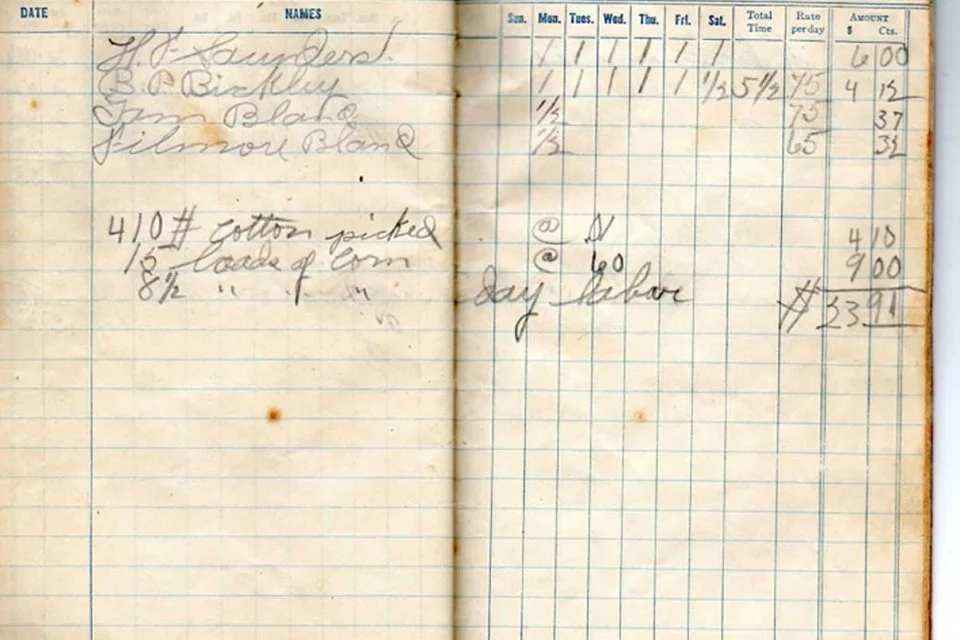 DATE NAMES Sun. Mon. Tues. Wed. Thu. Fri. Sat. Total Time Rate per day AMOUNT $ Cts.
H. F. Saunders 1 1 1 1 1 1 6 00
B. P. Bickley 1 1 1 1 1 1/2 5 1/2 75 4 12
Tom Bland 1/2 75 37
Filmore Bland 1/2 65 32
410 # cotton picked @ 4 10
15 loads of corn @ 60 9 00
8 1/2 " " " day labor # 23 91